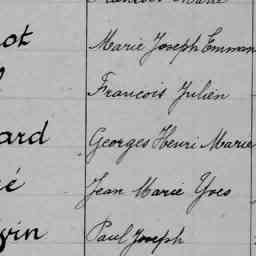 ot Marie Joseph Emman
François Julien
ard Georges Henri Marie
é Jean Marie Yves
vin Paul Joseph